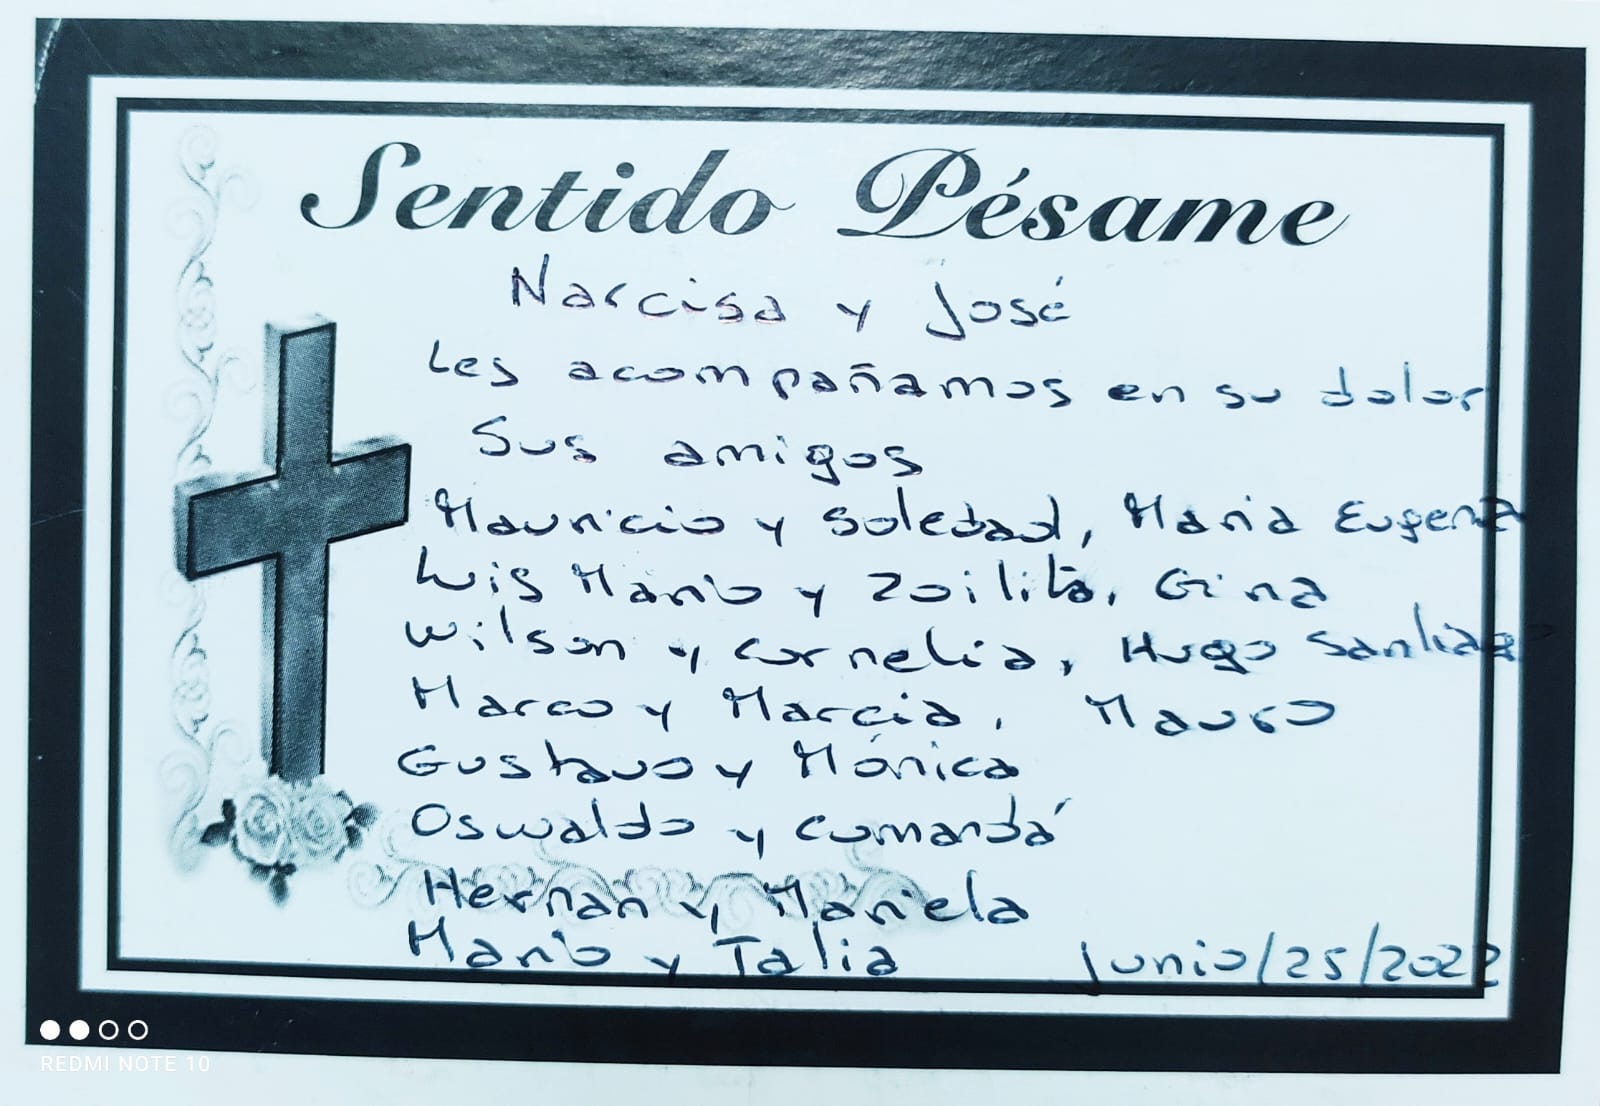 Sentido Pésame
Narcisa y José
Les acompañamos en su dolor
Sus amigos
Mauricio y Soledad, Maria Eugenia
Luis Mario y Zoilita, Gina
Wilson y Cornelia, Hugo Santiago
Marco y Marcia, Mauro
Gustavo y Mónica
Oswaldo y Cumandá
Hernan y Mariela
Mario y Talia junio/25/2022
REDMI NOTE 10